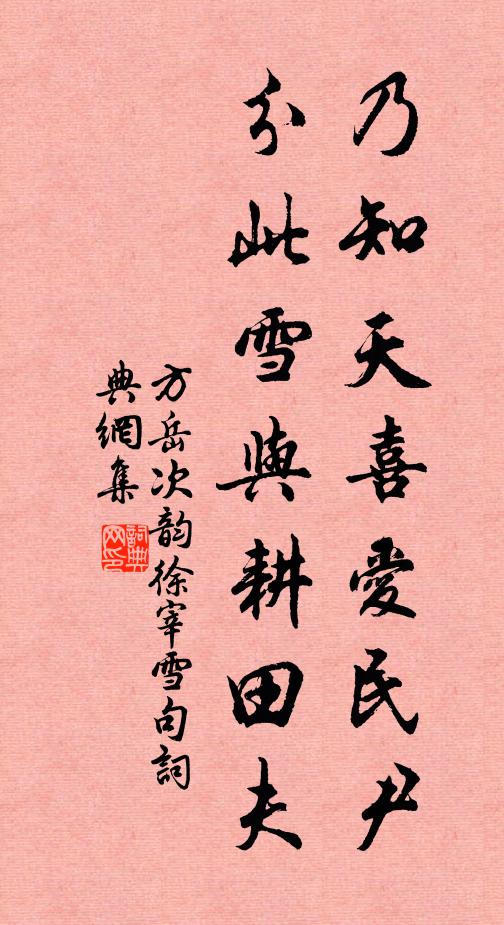 乃知天喜愛民尹
分此雪與耕田夫
方岳次韵徐宰雪句詞
典網集
詞典网印